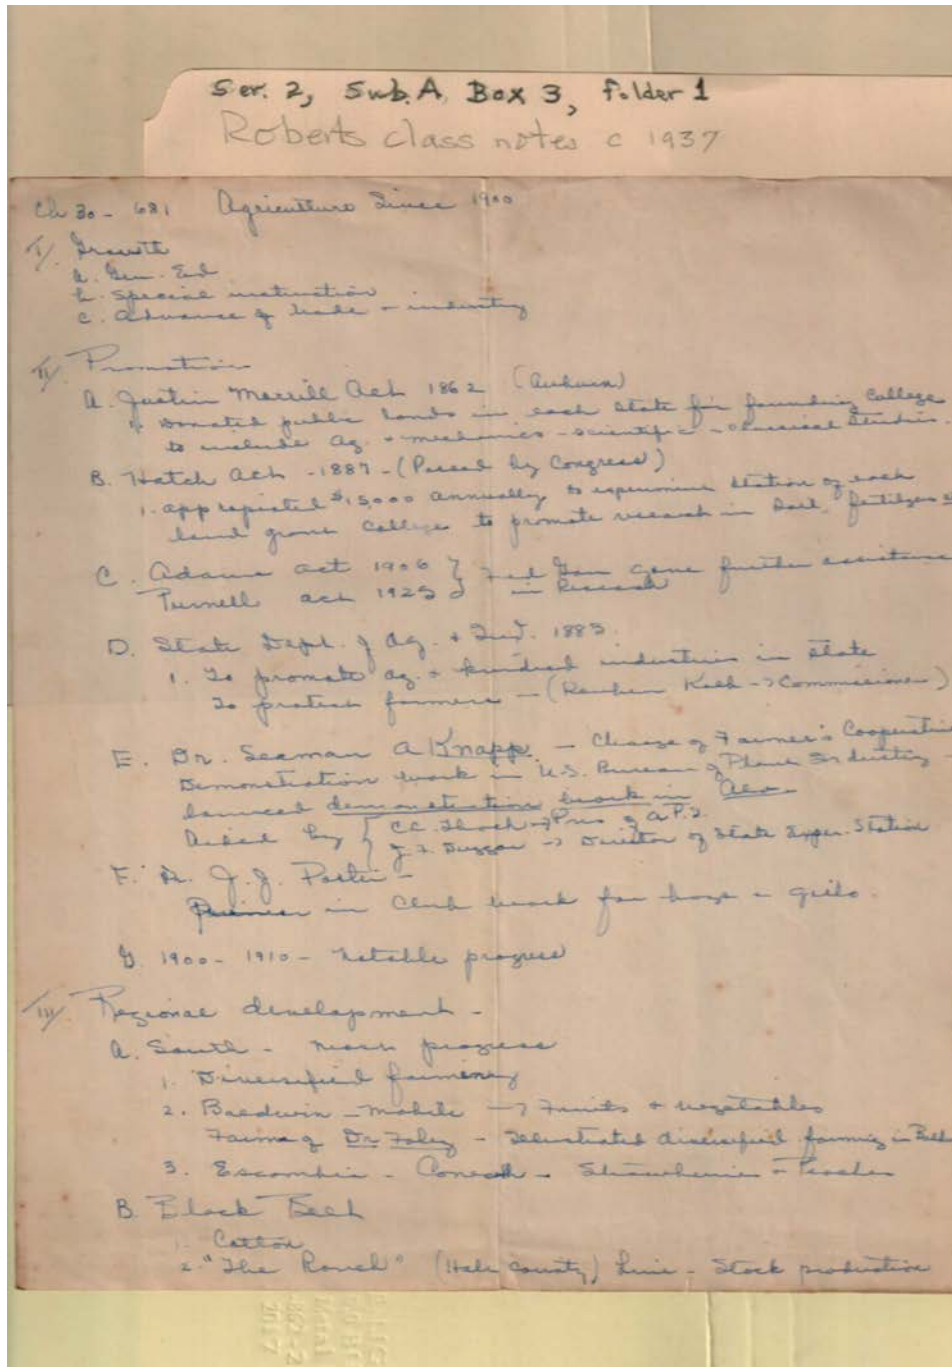 Ser. 2, Sub. A, Box 3, Folder 1
Roberts class notes c 1937
Ch 30 - 681 Agriculture Since 1900
I/. Growth
a. Gen. Ed
b. Special instruction
c. Advance of trade + industry
II/. Promotion
A. Justin Morrill Act 1862 (Auburn)
1. Donated public lands in each State for founding College
to include Ag. + mechanics - scientific - classical Studies.
B. Hatch Act - 1887 - (Passed by Congress)
1. appropiated $15,000 annually to experiment station of each
land grant College to promote research in soil, fertilizers
C. Adams act 1906 } Fed Gov gave further assistance
Purnell act 1925 } in Research
D. State Dept. of Ag. + Ind. 1883.
1. To promote ag. + kindred industries in state
To protect farmers - (Reuben Kolb -> Commissioner)
E. Dr. Seaman A Knapp - Charge of Farmer's Cooperative
Demonstration work in U.S. Bureau of Plant Industry -
demonstration work in Ala.
Aided by { C.C. Thach -> Pres of A.P.I.
J. F. Duggar -> Director of State Exper. Station
F. Dr. J. J. Porter -
Pioneer in Club work for boys + girls.
G. 1900 - 1910 - notable progress
III/. Regional development -
A. South - Most progress
1. Diversified farming
2. Baldwin - Mobile -> Fruits + vegetables
Farms of Dr Foley - Illustrated diversified farming in
3. Escambia - Conecuh - Strawberries + Peaches
B. Black Belt
1. Cotton
2. "The Ranch" (Hale County) - Stock production